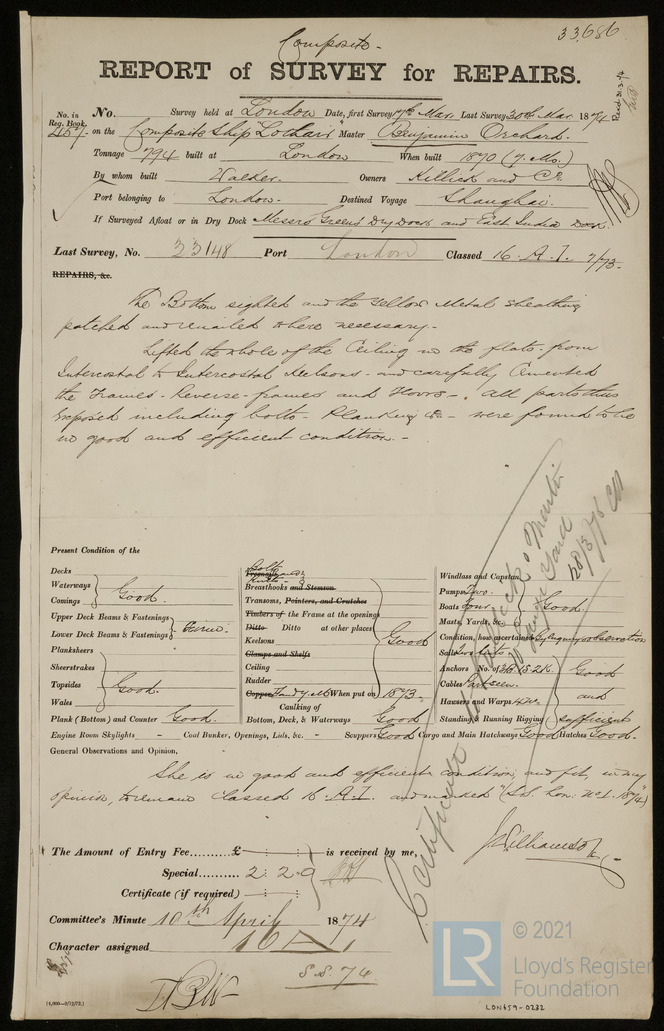 Composite - 33,686
REPORT of SURVEY for REPAIRS.
No. in Reg. Book. No. Survey held at London Date, first Survey 17th Mar. Last Survey 30th Mar. 1874
457 on the Composite Ship Lothair Master Benjamin Orchard.
Tonnage 794 built at London When built 1870 (7. Mo.)
By whom built Walker. Owners Killick and Co.
Port belonging to London. Destined Voyage Shanghai.
If Surveyed Afloat or in Dry Dock Messrs Greens Dry Dock and East India Dock.
Last Survey, No. 33148 Port London Classed 16. A.1. 7/73-
REPAIRS, &c.
The Bottom sighted and the Yellow Metal sheathing
patched and renailed where necessary.-
Lifted the whole of the Ceiling in the flats from
Intercostal to Intercostal Kelsons- and carefully Cemented
the Frames- Reverse-frames and Floors-. All parts thus
exposed including bolts- Planking &c- were found to be
in good and efficient condition.-
Present Condition of the
Decks
Waterways Good.
Comings
Upper Deck Beams & Fastenings
Lower Deck Beams & Fastenings
Planksheers
Sheerstrakes
Topsides Good.
Wales
Plank (Bottom) and Counter Good.
Bolts
Breasthooks and Stemson
Transoms, Pointers, and Crutches
Timbers of the Frame at the openings
Ditto Ditto at other places
Keelsons Good
Clamps and Shelfs
Ceiling
Rudder
Copper When put on 1873-
Caulking of
Bottom, Deck, & Waterways Good
Windlass and Capstan
Pumps Two.
Boats Four Good.
Masts, Yards, &c.
Condition, how ascertained By Enquiry & observation
Sails Two suits
Anchors No. of 3B. 1S. 2K. Good
Cables and
Hawsers and Warps
Standing & Running Rigging sufficient
Engine Room Skylights - Coal Bunker, Openings, Lids, &c. - Scuppers Good Cargo and Main Hatchways Good Hatches Good.
General Observations and Opinion,
She is in good and efficient condition, and fit, in my
opinion, to remain classed 16. A.1. and marked
Certificate
28/3/76
J. Williamson
The Amount of Entry Fee.......... £ : : is received by me,
Special .......... 2 : 2 : 9
Certificate (if required) : :
Committee's Minute 10th April 1874
Character assigned 16 A 1
S.S. 74
[4,000—9/12/72.]
LR
© 2021
Lloyd's Register
Foundation
LON659-0232